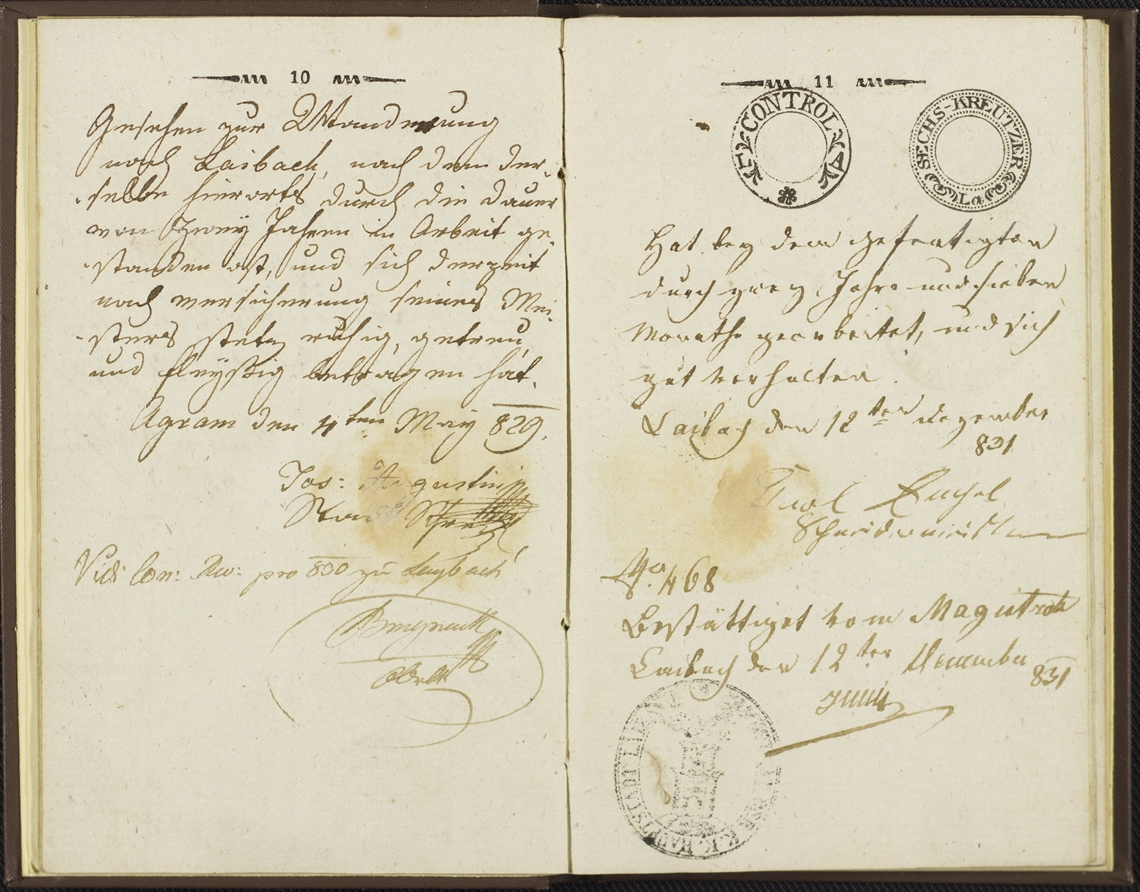 10
Gesehen zur Wanderung
nach Laibach, nach dem der-
selbe hierorts durch die Dauer
von Zwey Jahren in Arbeit ge-
standen ist, und sich derzeit
nach versicherung seines Mei-
sters stets ruhig, getreu
und fleyßig betragen hat.
Agram den 4ten May 829.
Jos: Augustin
Vidi Con: pro 830 zu Laybach
11
CONTROL
SECHS-KREUTZER
La
Hat bey dem gefertigten
durch zwey Jahre und sieben
Monathe gearbeitet, und sich
gut verhalten.
Laibach den 12ten Dezember
831
Schneidermeister
No 468
Bestättiget vom Magistrate
Laibach den 12ten Dezember
831
K.K. HAUPTSTADT LAIBACH